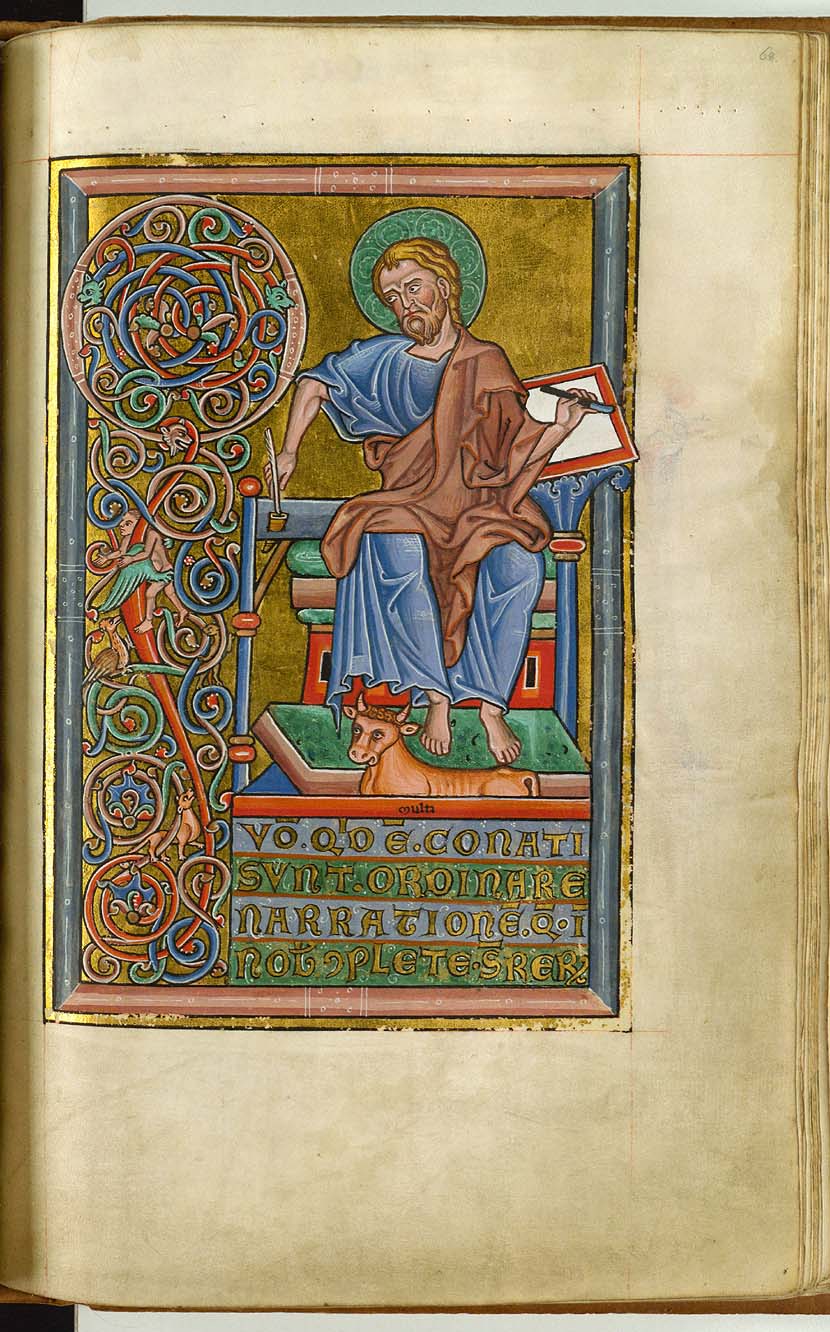 68
Q
multi
VŌ·QͥD Ē·CONATI
SVNT·ORDINARE
NARRATIONĒ·Q·Ī
NOƀ ꝯPLETE·S̄·RERꝜ